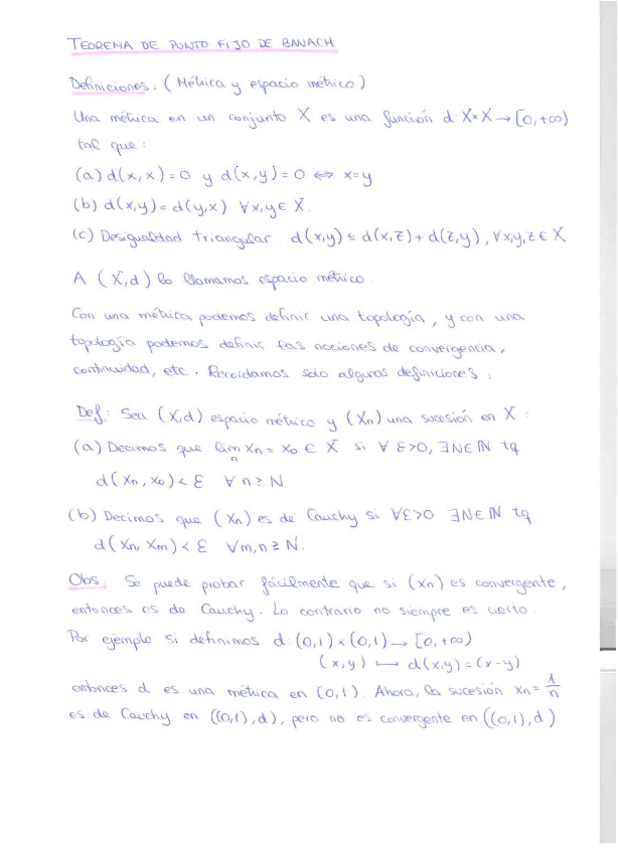 TEOREMA DE PUNTO FIJO DE BANACH
Definiciones: (Métrica y espacio métrico)
Una métrica en un conjunto X es una función d: X×X → [0,+∞)
tal que:
(a) d(x,x)=0 y d(x,y)=0 ⇔ x=y
(b) d(x,y)=d(y,x) ∀x,y∈X.
(c) Desigualdad triangular. d(x,y) ≤ d(x,z)+d(z,y), ∀x,y,z∈X
A (X,d) lo llamamos espacio métrico.
Con una métrica podemos definir una topología, y con una
topología podemos definir las nociones de convergencia,
continuidad, etc. Recordamos solo algunas definiciones:
Def: Sea (X,d) espacio métrico y (xn) una sucesión en X:
(a) Decimos que lim n xn = x0 ∈ X si ∀ε>0, ∃N∈ℕ tq
d(xn, x0) < ε ∀n≥N
(b) Decimos que (xn) es de Cauchy si ∀ε>0 ∃N∈ℕ tq
d(xn, xm) < ε ∀m,n≥N.
Obs: Se puede probar fácilmente que si (xn) es convergente,
entonces es de Cauchy. Lo contrario no siempre es cierto.
Por ejemplo si definimos d:(0,1)×(0,1) → [0,+∞)
(x,y) ↦ d(x,y)=(x-y)
entonces d es una métrica en (0,1). Ahora, la sucesión xn = 1/n
es de Cauchy en ((0,1),d), pero no es convergente en ((0,1),d)